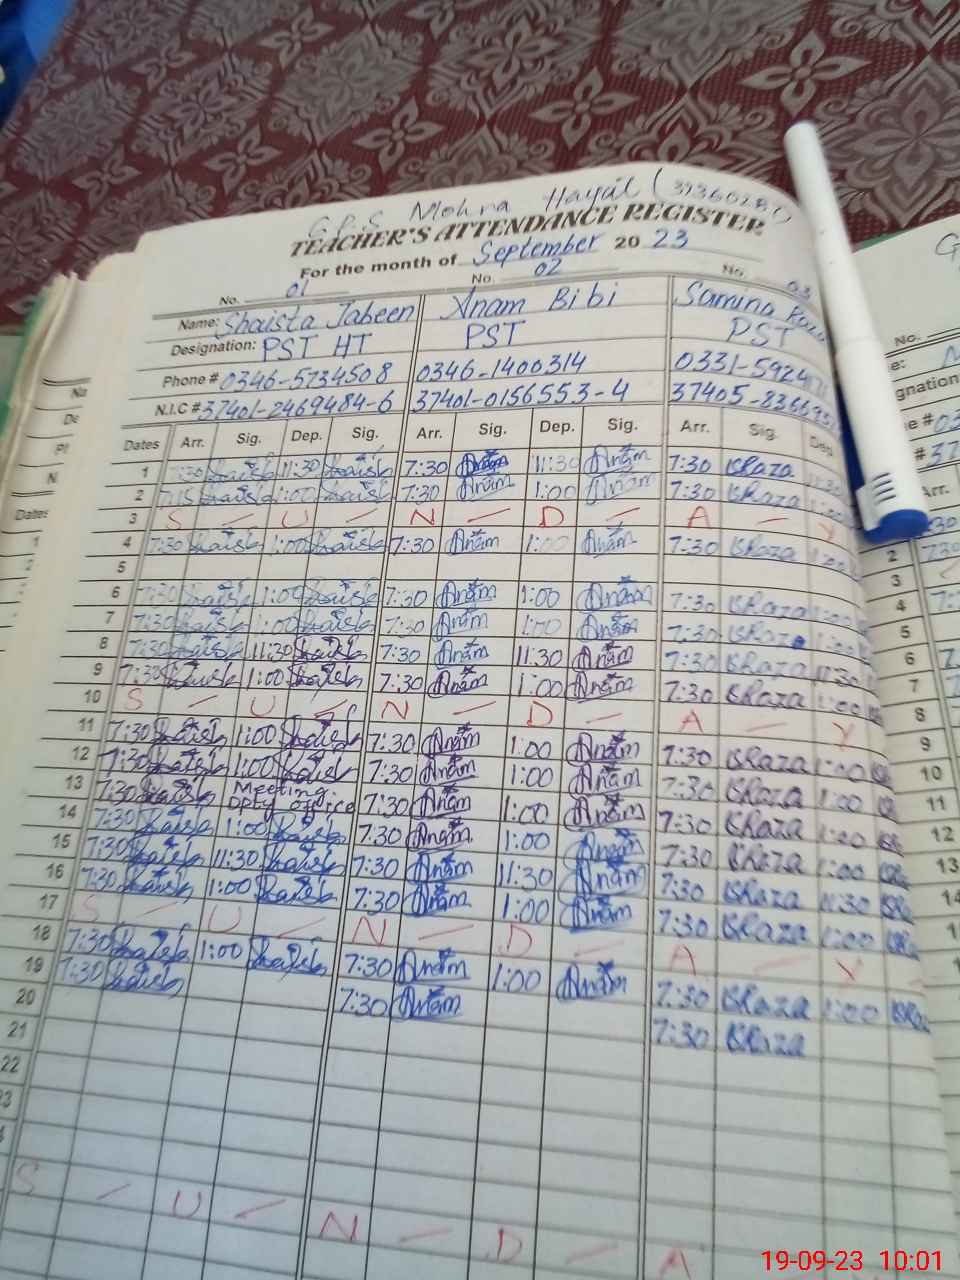 G.P.S Mohra Hayal (37360287)
TEACHER'S ATTENDANCE REGISTER
For the month of September 20 23
No. 01 No. 02 No. 03
Name: Shaista Jabeen Anam Bibi Samina
Designation: PST HT PST PST
Phone # 0346-5734508 0346-1400314 0331-5924
N.I.C # 37401-2469484-6 37401-0156553-4 37405-836
Dates Arr. Sig. Dep. Sig. Arr. Sig. Dep. Sig. Arr. Sig. Dep
1 7:30 Shaista 11:30 Shaista 7:30 Anam 11:30 Anam 7:30 KRaza 11:30
2 7:15 Shaista 1:00 Shaista 7:30 Anam 1:00 Anam 7:30 KRaza 1:00
3 S - U - N - D - A - Y
4 7:30 Shaista 1:00 Shaista 7:30 Anam 1:00 Anam 7:30 KRaza 1:00
5
6 7:30 Shaista 1:00 Shaista 7:30 Anam 1:00 Anam 7:30 KRaza 1:00
7 7:30 Shaista 1:00 Shaista 7:30 Anam 1:00 Anam 7:30 KRaza 1:00
8 7:30 Shaista 11:30 Shaista 7:30 Anam 11:30 Anam 7:30 KRaza 11:30
9 7:30 Shaista 1:00 Shaista 7:30 Anam 1:00 Anam 7:30 KRaza 1:00
10 S - U - N - D - A - Y
11 7:30 Shaista 1:00 Shaista 7:30 Anam 1:00 Anam 7:30 KRaza 1:00
12 7:30 Shaista 1:00 Shaista 7:30 Anam 1:00 Anam 7:30 KRaza 1:00
13 7:30 Shaista Meeting Dpty office 7:30 Anam 1:00 Anam 7:30 KRaza 1:00
14 7:30 Shaista 1:00 Shaista 7:30 Anam 1:00 Anam 7:30 KRaza 1:00
15 7:30 Shaista 11:30 Shaista 7:30 Anam 11:30 Anam 7:30 KRaza 11:30
16 7:30 Shaista 1:00 Shaista 7:30 Anam 1:00 Anam 7:30 KRaza 1:00
17 S - U - N - D - A - Y
18 7:30 Shaista 1:00 Shaista 7:30 Anam 1:00 Anam 7:30 KRaza 1:00
19 7:30 Shaista 7:30 Anam 7:30 KRaza
20
21
22
S - U - N - D - A
19-09-23 10:01